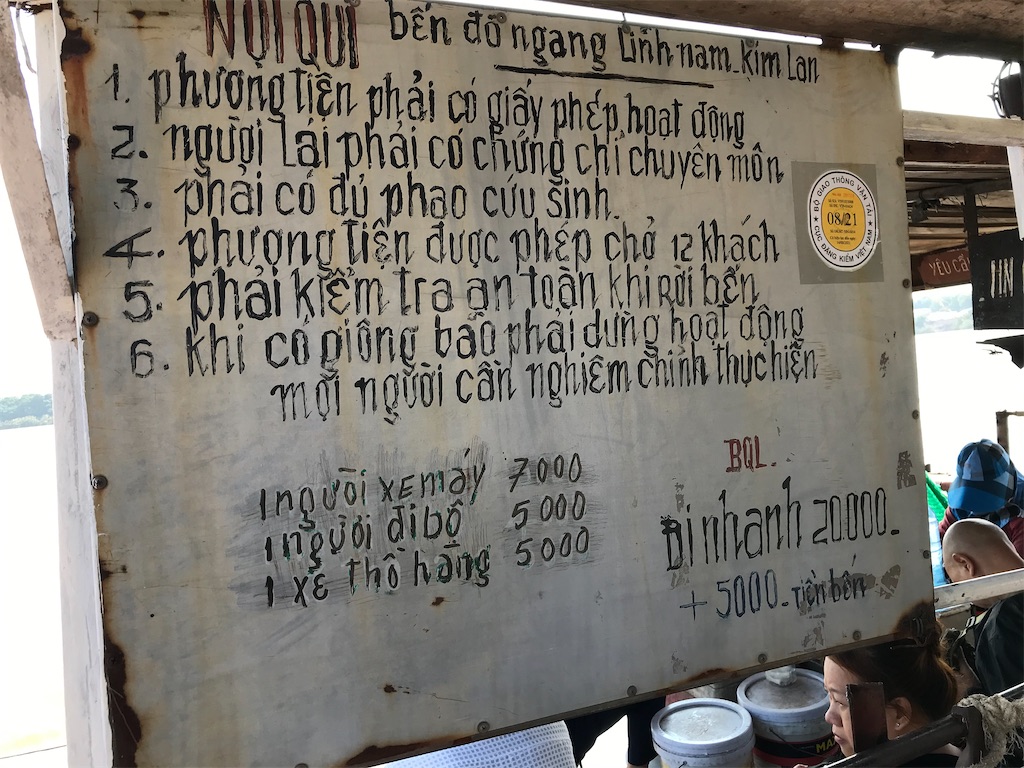 NỘI QUI bến đò ngang Lĩnh nam - Kim Lan
1. phương tiện phải có giấy phép hoạt động
2. người lái phải có chứng chỉ chuyên môn
3. phải có đủ phao cứu sinh
4. phương tiện được phép chở 12 khách
5. phải kiểm tra an toàn khi rời bến
6. khi có giông bão phải dừng hoạt động
mọi người cần nghiêm chỉnh thực hiện
BQL.
1 người xe máy 7000
1 người đi bộ 5000
1 xe thồ hàng 5000
Đi nhanh 20.000 -
+ 5000 - tiền bến
BỘ GIAO THÔNG VẬN TẢI
08/21
CỤC ĐĂNG KIỂM VIỆT NAM
YÊU CẦ